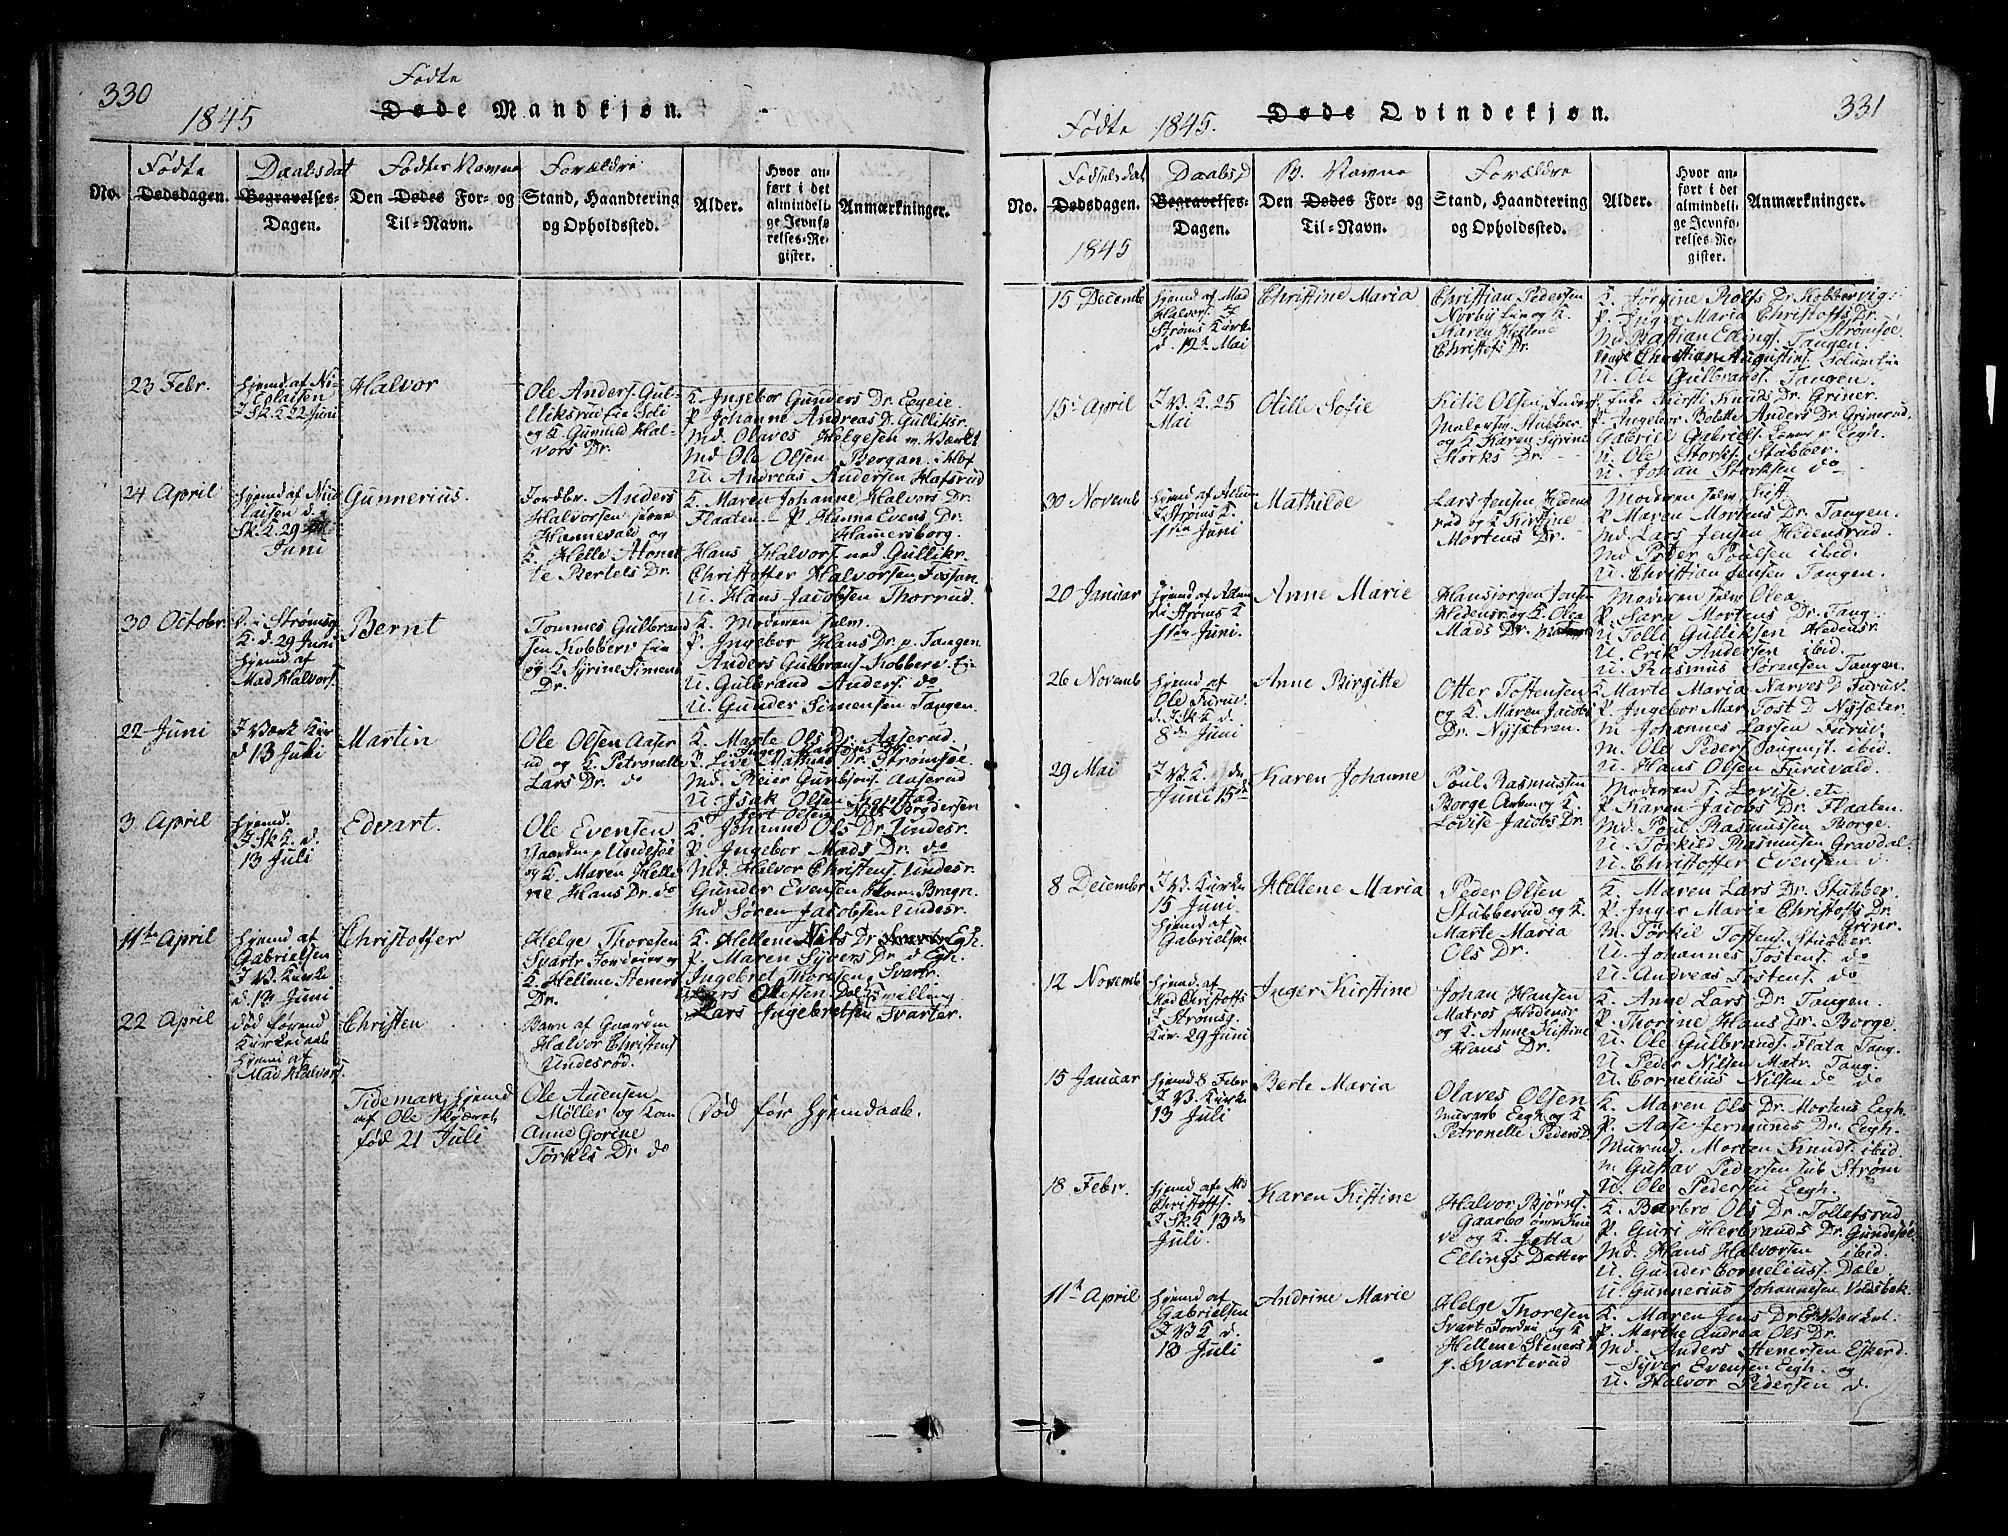 330
Fødte
Døde Mandkjøn.
1845
Fødte
Daabsdat
Fødtes Navne
Forældre
No.
Dødsdagen.
Begravelses-
Dagen.
Den Dødes For- og
Til-Navn.
Stand, Haandtering
og Opholdssted.
Alder.
Hvor an-
ført i det
almindeli-
ge Jevnfø-
relses-Re-
gister.
Anmærkninger.
23 Febr.
Hjemd af Ni-
colaisen
I Sk. K. 22 Juni
Halvor
Ole Anders. Gul-
liksrud
og K. Gunild Hal-
vors Dr.
K. Ingebor Gunders Dr.
P. Johanne Andreas D. Gulliksr.
Md. Olaves Helgesen
Md Ole Olsen Bergan
U. Andreas Andersen Hafsrud
24 April
Hjemd af Nico
laisen d.
Sk. K. 29
Juni
Gunnerius
Jordbr. Anders
Halvorsen
Hannevald og
K. Helle
te Bertels Dr.
K. Maren Johanne Halvors Dr.
Flaaten. P Hanna Evens Dr.
Hamersborg.
Hans Halvors. ned. Gullikr.
Christoffer Halvorsen Fossan
U. Hans Jacobsen Thorrud.
30 Octobr.
D. i Strømsg.
K. d. 29 Juni
Hjemd af
Mad Halvors.
Bernt
Tommes Gulbrand
sen Kobberv
og K. Syrine Simens
Dr.
K. Moderen selv.
P. Ingebor Hans Dr. p. Tangen
Anders Gulbrans. Kobberv.
U. Gulbrand Anders. do
U. Gunder Simensen Tangen.
22 Juni
I Værk Kir
d 13 Juli
Martin
Ole Olsen Aaser
ud og K. Petronelle
Lars Dr. do
K. Marte Ols Dr. Aaserud.
P. Live Mathias Dr. Strømsøe.
Md. Peier Gulbsens. Aaserud
U. Isak Olsen Kopstad
3 April
Hjemd.
I Sk. K. d.
13 Juli
Edvart.
Ole Evensen
Gaardm p Undesøe
og K. Maren Helle
ne Hans Dr. do
K. Johanne Ols Dr. Undesr.
P. Ingebor Mads Dr. do
Md. Halvor Christens. Undesr.
Gunder Evensen Bragn.
Md Søren Jacobsen Undesr.
11te April
Hjemd af
Gabrielsen
I V. Kirke
d. 13 Juni
Christoffer
Helge Thoresen
Svartr. Jordeier og
K. Hellene Steners
Dr.
K. Hellene Nils Dr. Egh.
P. Maren Syvers Dr. d Egh.
Ingebret Thoresen Svartr.
Lars Olessen Dal Tvilling
Lars Ingebretsen Svarter.
22 April
død førend
Kirkedaab
Hjemd af
Mad Halvors.
Christen
Barn af Gaardm
Halvor Christens
Undesrød.
Tideman, hjemd
af Ole Kjæret,
fød 21 Juli
Ole Auensen
Møller og Kon
Anne Gorine
Torkils Dr. do
død før Hjemdaab.
331
Fødte 1845.
Døde Qvindekjøn.
Fødselsdat
Daabsd
B. Navne
Forældre
No.
Dødsdagen.
1845
Begravelses-
Dagen.
Den Dødes For- og
Til-Navn.
Stand, Haandtering
og Opholdssted.
Alder.
Hvor an-
ført i det
almindeli-
ge Jevnfø-
relses-Re-
gister.
Anmærkninger.
15 Decemb
Hjemd af Mad
Halvors. I
Strøms Kirk.
d. 12te Mai
Christine Maria
Christian Pedersen
Nørby og K.
Karen Hellene
Christofs Dr.
K. Jørgine Rolfs Dr. Kobbervig:
P. Inger Maria Christoffs Dr.
Md Bastian Ellings. Strømsøe
Tangen.
Christian Augustins.
U. Ole Gulbrands. Tangen.
15de April
I V. K. 25
Mai
Otille Sofie
Kitil Olsen
Stubber.
og K. Karen Syrine
Storks Dr.
Kirsti Knuds Dr. Griner.
P. Ingebor Bolette Anders Dr. Grinerud.
Gabriel Gabriels. Egh.
U. Ole Storks. Stubber.
U. Johan Storksen do
30 Novemb
I Strøms K.
1ste Juni
Mathilde
Lars Jensen Hedens
rud og K Kirstine
Mortens Dr.
Moderen selv
P Maren Mortens Dr. Tangen.
Md. Lars Jensen Hedensrud.
Md. Peder Poulsen ibid.
U. Christian Jensen Tangen.
20 Januar
Strøms K
1ste Juni.
Anne Marie
Hansjørgen Jonsen
Hedensr og K. Olea
Mads Dr.
Moderen selv Olea
P. Sara Mortens Dr. Tang.
U Tolle Gulliksen Hedensr.
U. Erik Andersen ibid.
U. Rasmus Sørensen Tangen.
26 Novemb
Hjemd af
Ole Furuv.
d. I Sk K d.
8de Juni
Anne Birgitte
Otter Tostensen
og K. Maren Jacobs
Dr. Nysætren.
K. Marte Maria Narves D Furuv.
P. Ingebor Mar. Tost D Nysæter
M Johannes Larsen Furuv.
M. Ole Peders. ibid.
U. Hans Olsen Furuvald.
29 Mai
I V. K. den
Juni 15de
Karen Johanne
Poul Rasmussen
Borge og K.
Lovise Jacobs Dr.
Moderen T. Lovise
P. Karen Jacobs Dr. Flaaten.
Md. Poul Rasmussen Borge.
U. Torkild Rasmusen Gravdal.
U. Christoffer Evensen d.
8 Decembr
I V. Kirke
15 Juni.
Hjemd af
Gabrielsen
Hellene Maria
Peder Olsen
Stubberud og K.
Marte Maria
Ols Dr.
K. Maren Lars Dr. Stubber.
P. Inger Maria Christoffs Dr.
Grinr.
M. Torkil Tostens. Stubber.
U. Johannes Tostens. do
U. Andreas Tostens. do
12 Novemb
Hjemd. af
Mad Christoffs
I Strømsg.
Kir. 29 Juni
Inger Kirstine
Johan Hansen
Matros Hedensr
og K. Anne Kistine
Hans Dr.
K. Anne Lars Dr. Tangen.
P. Thorine Hans Dr. Borge
U. Ole Gulbrands. Flata Tang.
U Peder Nilsen Matr. Tang.
U. Cornelius Nilsen do do
15 Januar
Hjemd 8 Febr
I V. Kirk.
13 Juli
Berte Maria
Olaves Olsen
Murarb Egh og K
Petronelle Peders D
K. Maren Ols Dr. Mortens Egh.
P. Aase Jermunds Dr. Egh.
Murmd. Morten Knuds. ibid.
M Gustav Pedersen Strøm
U. Ole Pedersen Egh.
18 Febr.
Hjemd af Md
Christoffs.
I Sk K 13de
Juli.
Karen Kistine
Halvor Bjørns.
Gaarbo
og K. Jetta
Ellings Datter
K. Barbro Ols Dr. Tollefsrud
P. Guri Herbrands Dr. Gundesøe
Md. Hans Halvorsen ibid.
U. Gunder Cornelius. Dale.
U. Gunnerius Johannesen
11te April
Hjemd af
Gabrielsen
I V K d.
13 Juli
Andrine Marie
Helge Thoresen
Svart Jordei og K
Hellene Steners D
p. Svarterud
K. Maren Jens Dr.
P. Marthe Andrea Ols Dr.
Md. Anders Stenersen Eskerd.
Syver Evensen Egh. og
U. Halvor Pedersen d.